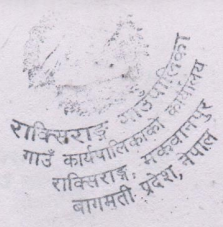 राक्सिराङ्ग गाउँपालिका
गाउँ कार्यपालिकाको कार्यालय
राक्सिराङ्ग, मकवानपुर
बागमती प्रदेश, नेपाल